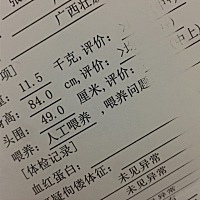 广西壮
项]
11.5 千克,评价:
84.0 cm,评价:
头围: 49.0 厘米,评价:
喂养: 人工喂养 ,喂养问题
[体检记录]
血红蛋白: 未见异常
疑佝偻体征: 未见异常
未见异常